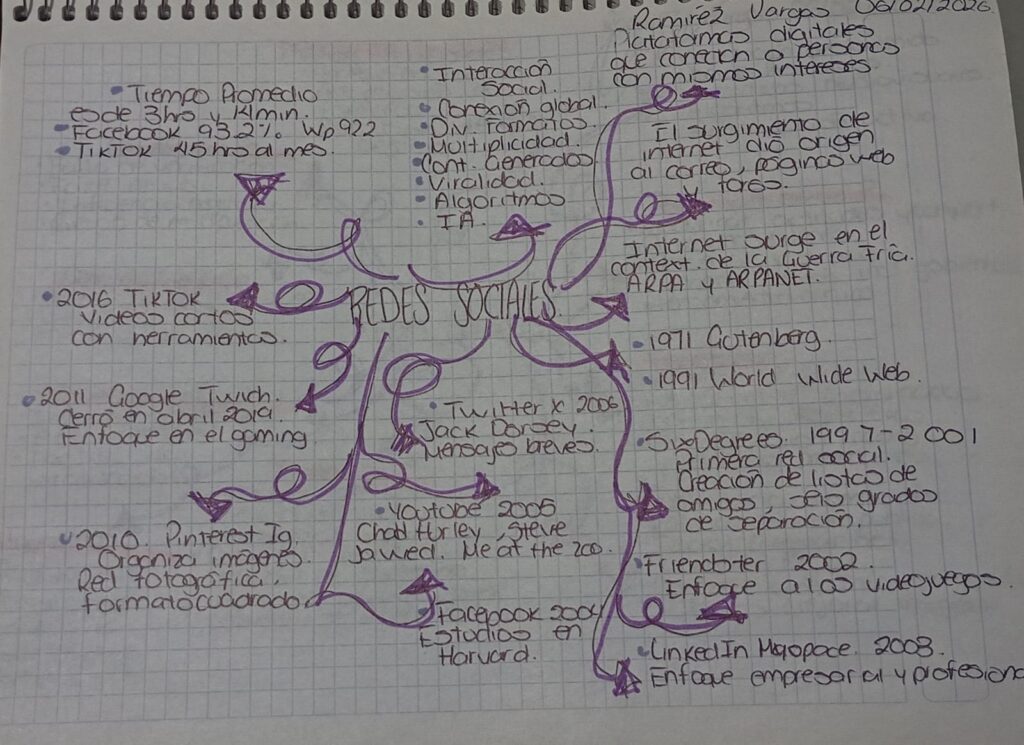 Ramírez Vargas 06/02/2026
Platatormas digitales
que conectan a personas
con mismos intereses
• Interacción
Social.
• Conexión global.
• Div. Formatos.
• Multiplicidad.
• Cont. Generados
• Viralidad.
• Algoritmos
• IA.
• Tiempo Promedio
es de 3hrs y 14min.
• Facebook 93.2% Wp 92.2
• TikTok 45 hrs al mes.
El surgimiento de
internet dió origen
al correo, páginas web
foros.
Internet surge en el
context. de la Guerra Fría.
ARPA y ARPANET.
REDES SOCIALES.
• 1971 Gutenberg.
• 1991 World Wide Web.
• SixDegrees. 1997-2001
Primera red social.
Creación de listas de
amigos, seis grados
de separación.
• Friendster 2002.
Enfoque a los videojuegos.
• LinkedIn Myspace. 2003.
Enfoque empresarial y profesiona
• Facebook 2004
Estudios en
Harvard.
• Youtube 2005
Chad Hurley, Steve
Jawed. Me at the zoo.
• Twitter X 2006
Jack Dorsey.
Mensajes breves.
• 2010. Pinterest Ig.
Organiza imágenes.
Red fotográfica,
formato cuadrado
• 2011 Google Twich.
Cerró en abril 2019.
Enfoque en el gaming
• 2016 TikTok
Videos cortos
con herramientas.